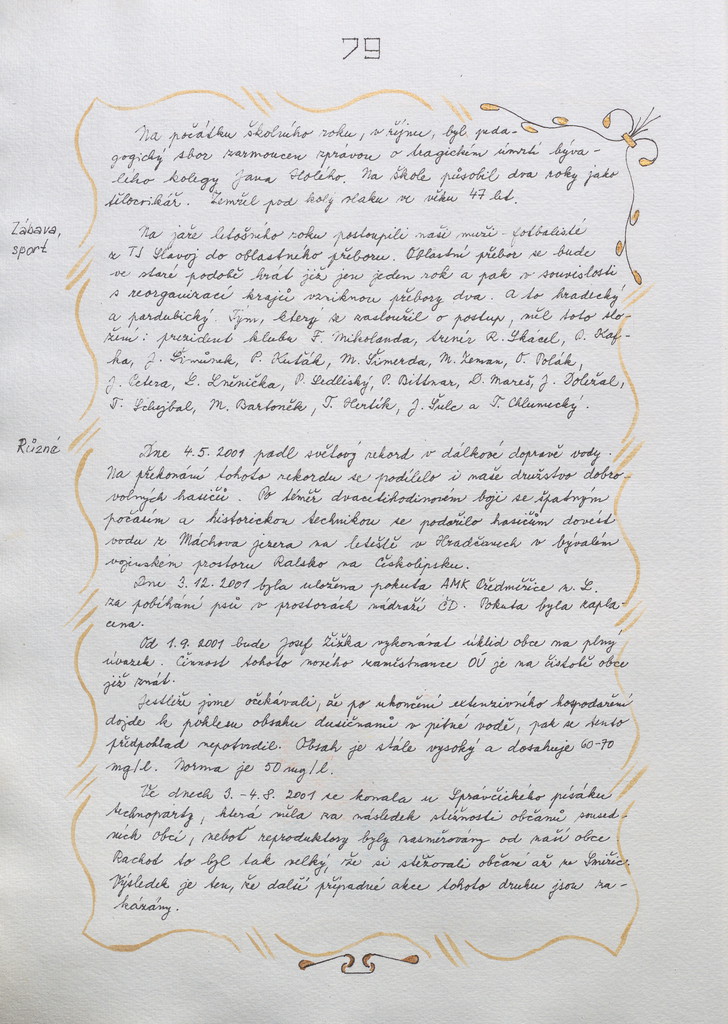 79
Na počátku školního roku, v říjnu, byl peda-
gogický sbor zarmoucen zprávou o tragickém úmrtí býva-
lého kolegy Jana Holého. Na škole působil dva roky jako
tělocvikář. Zemřel pod koly vlaku ve věku 47 let.
Zábava,
sport
Na jaře letošního roku postoupili naši muži - fotbalisté
z TJ Slavoj do oblastního přeboru. Oblastní přebor se bude
ve staré podobě hrát již jen jeden rok a pak v souvislosti
s reorganizací krajů vzniknou přebory dva. A to hradecký
a pardubický. Tým, který se zasloužil o postup, měl toto slo-
žení: prezident klubu F. Mikolanda, trenér R. Skácel, O. Kaf-
ka, J. Šimůnek, P. Kuťák, M. Šimerda, M. Zeman, O. Polák,
J. Cetera, L. Lněnička, P. Sedliský, P. Bittnar, D. Mareš, J. Doležal,
T. Schejbal, M. Bartoněk, T. Hertík, J. Šulc a T. Chlumecký.
Různé
Dne 4.5. 2001 padl světový rekord v dálkové dopravě vody.
Na překonání tohoto rekordu se podílelo i naše družstvo dobro-
volných hasičů. Po téměř dvacetihodinovém boji se špatným
počasím a historickou technikou se podařilo hasičům dovést
vodu z Máchova jezera na letiště v Hradčanech v bývalém
vojenském prostoru Ralsko na Českolipsku.
Dne 3. 12. 2001 byla uložena pokuta AMK Předměřice n. L.
za pobíhání psů v prostorách nádraží ČD. Pokuta byla zapla-
cena.
Od 1. 9. 2001 bude Josef Žižka vykonávat úklid obce na plný
úvazek. Činnost tohoto nového zaměstnance OÚ je na čistotě obce
již znát.
Jestliže jsme očekávali, že po ukončení extenzivního hospodaření
dojde k poklesu obsahu dusičnanů v pitné vodě, pak se tento
předpoklad nepotvrdil. Obsah je stále vysoký a dosahuje 60-70
mg/l. Norma je 50 mg/l.
Ve dnech 3. - 4. 8. 2001 se konala u Správčického písáku
technopárty, která měla za následek stížnosti občanů soused-
ních obcí, neboť reproduktory byly nasměrovány od naší obce.
Rachot to byl tak velký, že si stěžovali občané až ze Smiřic.
Výsledek je ten, že další případné akce tohoto druhu jsou za-
kázány.